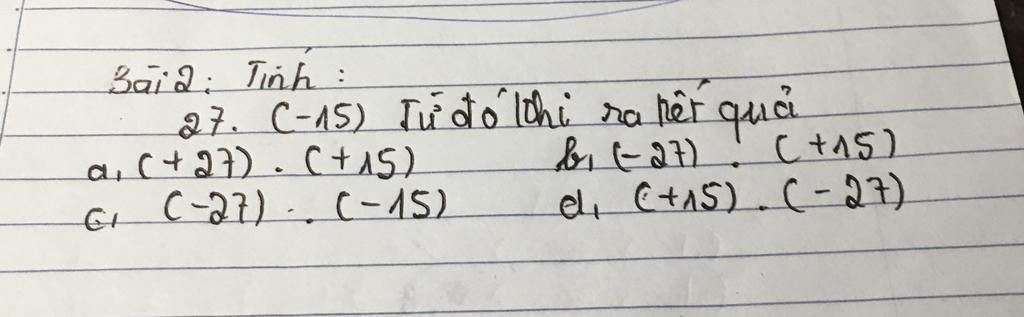 Bài 2: Tính:
27. (-15) Từ đó chỉ ra kết quả
a, (+27) . (+15) b, (-27) . (+15)
c, (-27) . (-15) d, (+15) . (-27)